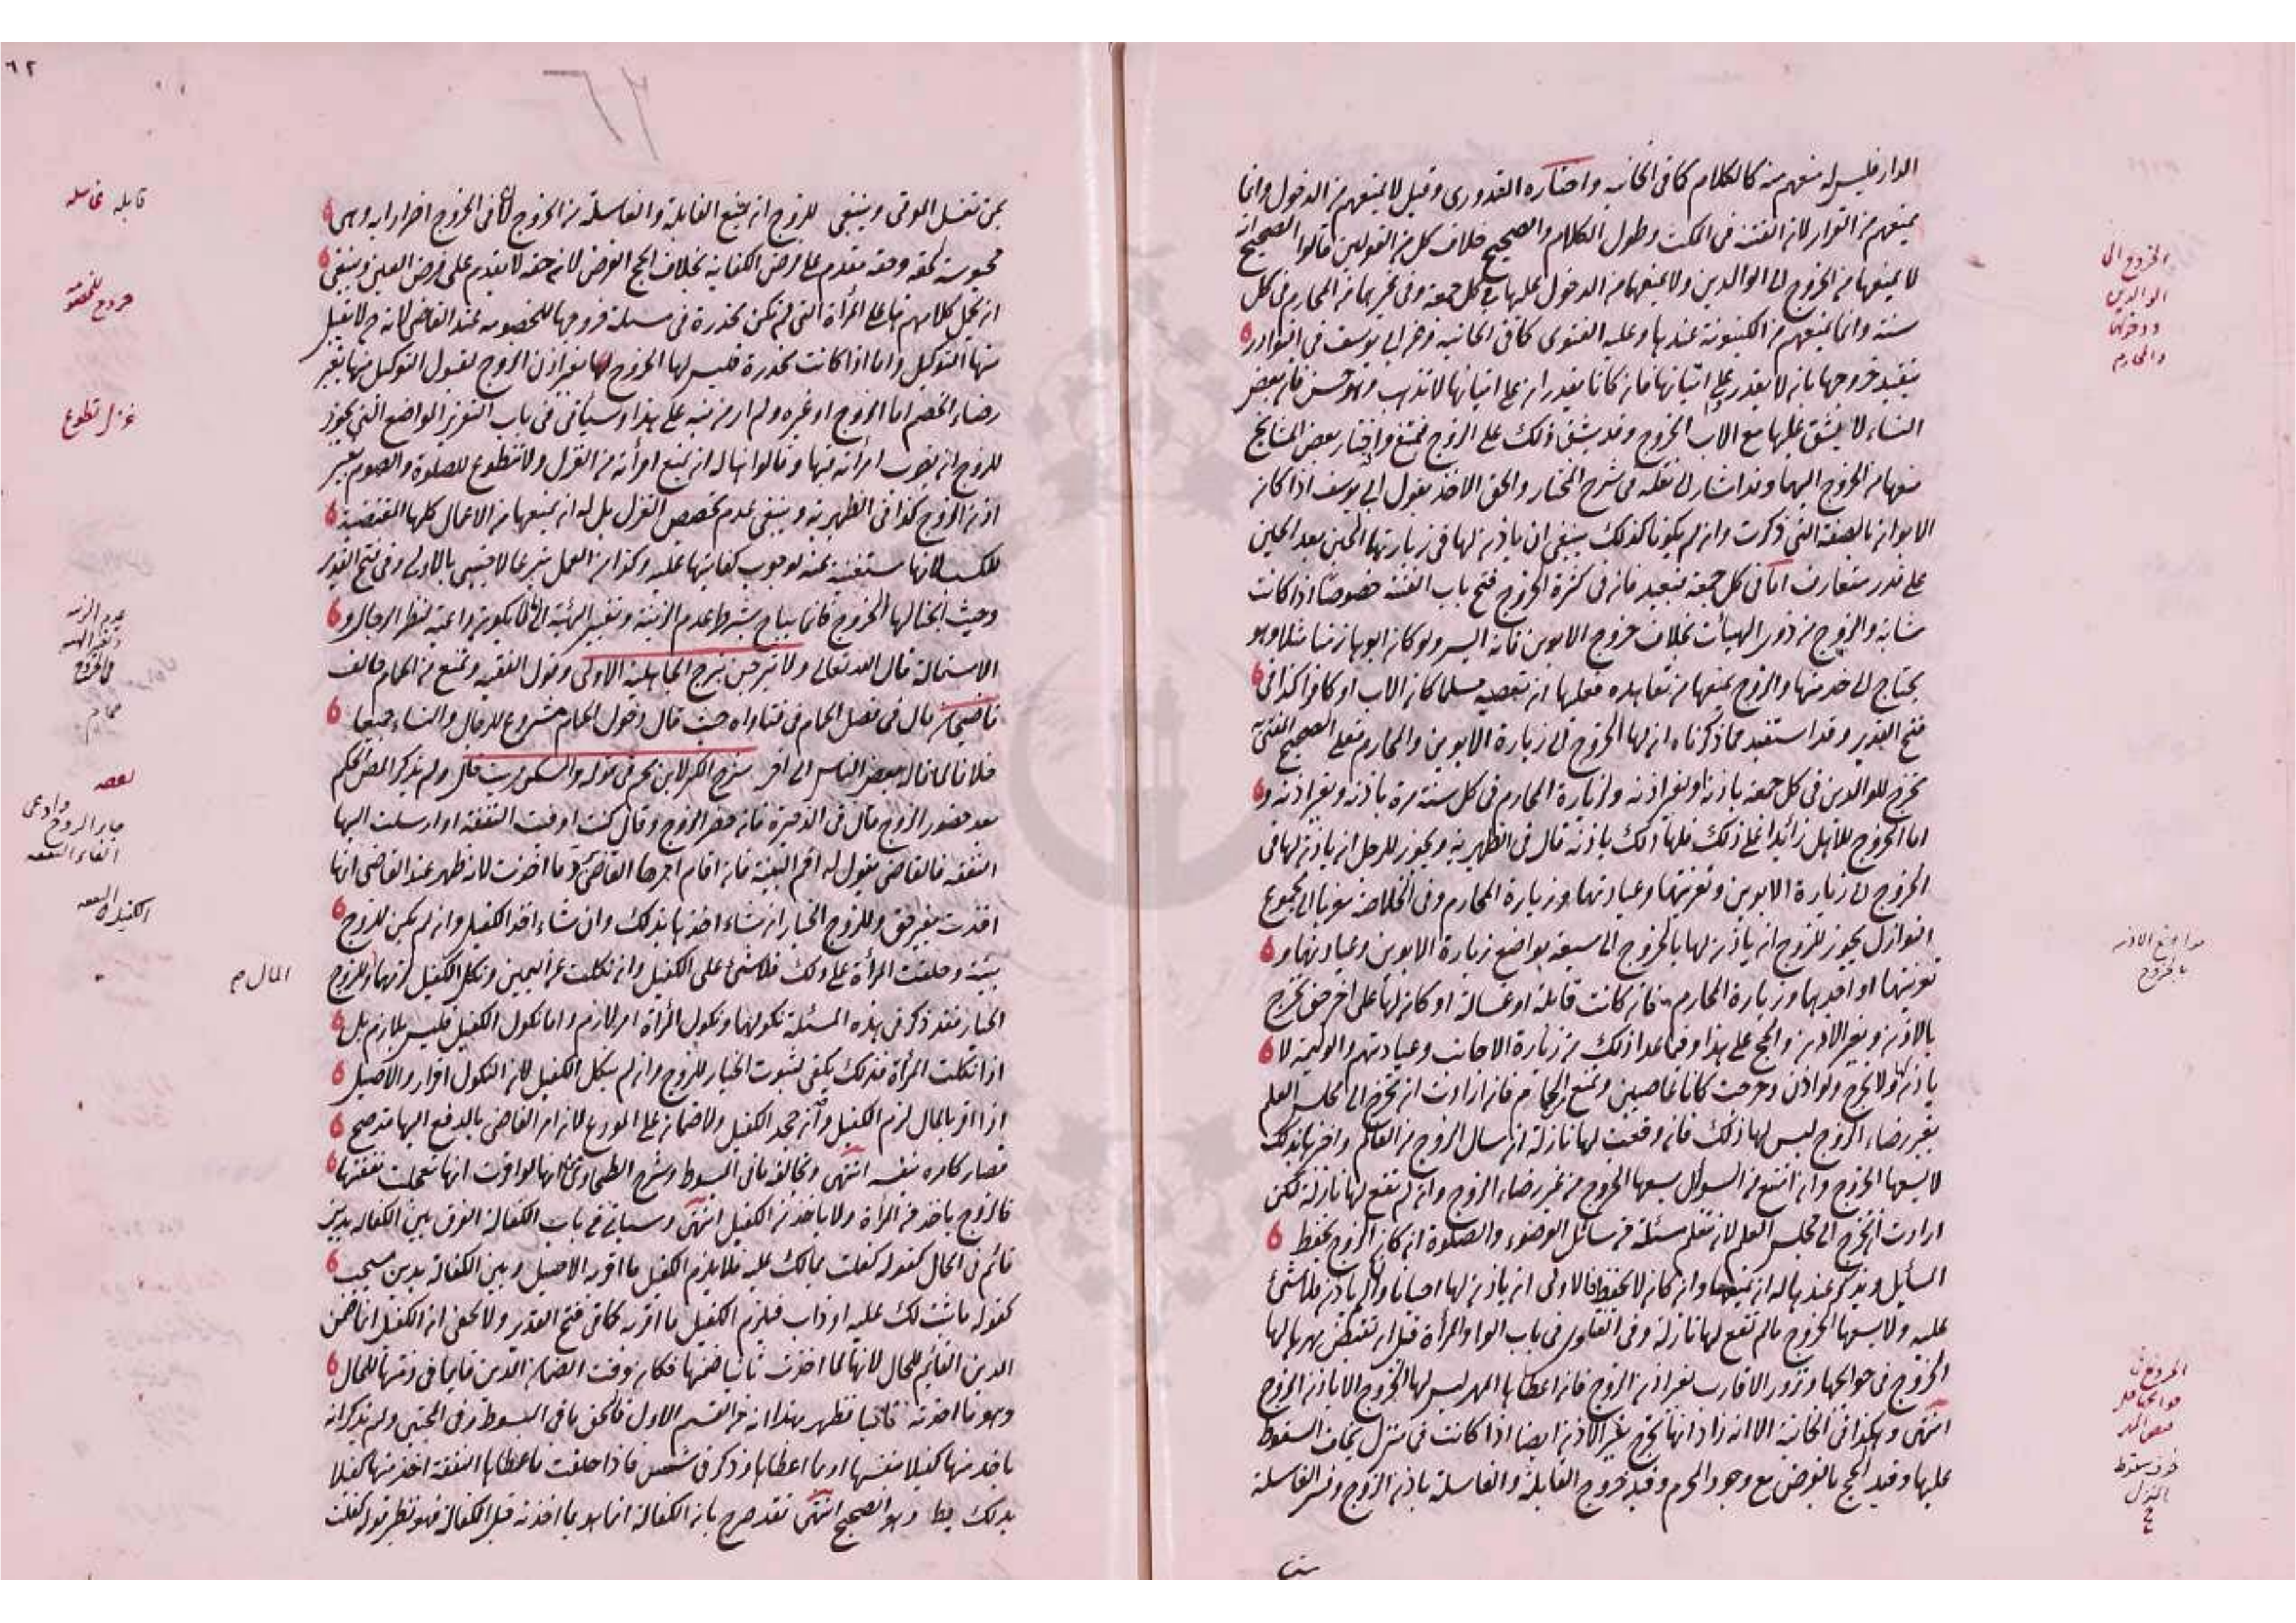 الدار فليس له منعهم منه كالكلام كما فى الخانيه واختاره القدورى وقيل لا يمنعهم من الدخول وانما
يمنعهم من القرار لان الفتنه فى المكث وطول الكلام والصحيح خلاف كل من القولين قالوا الصحيح انه
لا يمنعها من الخروج الى الوالدين ولا يمنعهما من الدخول عليها فى كل جمعة وفى غيرهما من المحارم فى كل
سنة وانما يمنعهم من الكينونة عندها وعليه الفتوى كما فى الخانية وعن ابى يوسف فى النوادر
تقييد خروجها بان لا يقدر على اتيانها فان كانا يقدران على اتيانها لا تذهب وهو حسن فان بعض
النساء لا يشق عليها مع الاب الخروج وقد يشق ذلك على الزوج فتمتنع واختار بعض المشايخ
منعها من الخروج اليهما وقد اشار الى نقله فى شرح المختار والحق الاخذ بقول ابى يوسف اذا كان
الابوان بالصفة التى ذكرت وان لم يكونا كذلك ينبغى ان ياذن لها فى زيارتهما الحين بعد الحين
على قدر متعارف اما فى كل جمعة فبعيد فان فى كثرة الخروج فتح باب الفتنه خصوصا اذا كانت
شابة والزوج من ذوى الهيآت بخلاف خروج الابوين فانه ايسر ولو كان ابوها زمنا مثلا وهو
يحتاج الى خدمتها والزوج يمنعها من تعاهده فعليها ان تعصيه مسلما كان الاب او كافرا كذا فى
فتح القدير وقد استفيد مما ذكرناه ان لها الخروج الى زيارة الابوين والمحارم فعلى الصحيح المفتى به
تخرج للوالدين فى كل جمعه باذنه وبغير اذنه ولزيارة المحارم فى كل سنة مرة باذنه وبغير اذنه و
اما الخروج للاهل زائدا على ذلك فلها ذلك باذنه قال فى الظهيريه ويجوز للرجل ان ياذن لها فى
الخروج الى زيارة الابوين وتعزيتهما وعيادتهما وزيارة المحارم وفى الخلاصة معزيا الى مجموع
النوازل يجوز للزوج ان ياذن لها بالخروج الى سبعة مواضع زيارة الابوين وعيادتهما و
تعزيتهما او احدهما وزيارة المحارم فان كانت قابلة او غسالة او كان لها على اخر حق تخرج
بالاذن وبغير الاذن والحج على هذا وفيما عدا ذلك من زيارة الاجانب وعيادتهم والوليمة لا
ياذن لها ولا تخرج ولو اذن وخرجت كانا عاصيين وتمنع من الحمام فان ارادت ان تخرج الى مجلس العلم
بغير رضاء الزوج ليس لها ذلك فان وقعت لها نازلة ان سال الزوج من العالم واخبرها بذلك
لا يسعها الخروج وان امتنع من السوال يسعها الخروج من غير رضاء الزوج وان لم تقع لها نازلة لكن
ارادت ان تخرج الى مجلس العلم لان تتعلم مسئلة من مسائل الوضوء والصلوة ان كان الزوج يحفظ
المسايل ويذكر عندها له ان يمنعها وان كان لا يحفظ فالاولى ان ياذن لها احيانا وان لم ياذن فلا شئ
عليه ولا يسعها الخروج ما لم تقع لها نازلة وفى الفتاوى فى باب الواو المرأة قبل ان تقبض مهرها لها
الخروج فى حوايجها وتزور الاقارب بغير اذن الزوج فان اعطاها المهر ليس لها الخروج الا باذن الزوج
انتهى وهكذا فى الخانية الا انه زاد انها تخرج بغير الاذن ايضا اذا كانت فى منزل يخاف السقوط
عليها وقيد الحج بالفرض مع وجود المحرم وقيد خروج القابلة والغاسلة باذن الزوج وفسر الغاسلة
الخروج الى
الوالدين
ودخولهما
والمحارم
مواضع الاذن
بالخروج
الخروج فى
حوايجها قبل
قبض المهر
خوف سقوط
المنزل
٦٢
بمن تغسل الموتى وينبغى للزوج ان يمنع القابلة والغاسلة من الخروج لان فى الخروج اضرارا به وهى
محبوسة لحقه وحقه مقدم على فرض الكفاية بخلاف الحج الفرض لان حقه لا يقدم على فرض العين وينبغى
ان يحمل كلامهم هنا على المرأة التى لم تكن مخدرة فى مسئلة خروجها للخصومة عند القاضى لانه ح لا يقبل
منها التوكيل واما اذا كانت مخدرة فليس لها الخروج بغير اذن الزوج لقبول التوكيل منها بغير
رضاء الخصم اما الزوج او غيره ولم ار من نبه على هذا وسيأتى فى باب التعزير المواضع التى يجوز
للزوج ان يضرب امرأته فيها وقالوا هنا له ان يمنع امرأته من الغزل ولا تتطوع للصلوة والصوم بغير
اذن الزوج كذا فى الظهيرية وينبغى عدم تخصيص الغزل بل له ان يمنعها من الاعمال كلها المقتضية
للكسب لانها مستغنية عنه لوجوب كفايتها عليه وكذا من العمل تبرعا لاجنبى بالاولى وفى فتح القدير
وحيث ابحنا لها الخروج فانما يباح بشرط عدم الزينة وتغيير الهيئة الى ما لا يكون داعية لنظر الرجال و
الاستمالة قال الله تعالى ولا تبرجن تبرج الجاهلية الاولى وقول الفقيه وتمنع من الحمام خالف
قاضيخان قال فى فصل الحمام فى فتاواه حيث قال دخول الحمام مشروع للرجال والنساء جميعا
خلافا لما قاله بعض الناس الى آخره شرح الكنز لابن نجيم فى قوله والسكنى بيت خال ولم يذكر المص الحكم
بعد حضور الزوج قال فى الذخيرة فان حضر الزوج وقال كنت اوفيت النفقة او ارسلت اليها
النفقه فالقاضى يقول له اقم البينة فان اقام امرها القاضى برد ما اخذت لانه ظهر عند القاضى انها
اخذت بغير حق وللزوج الخيار ان شاء اخذها بذلك وان شاء اخذ الكفيل وان لم يكن للزوج
بينة وحلفت المرأة على ذلك فلا شئ على الكفيل وان نكلت عن اليمين ونكل الكفيل لزمهما وللزوج
الخيار فقد ذكر فى هذه المسئلة نكولهما ونكول المرأة امر لازم واما نكول الكفيل فليس بلازم بل
اذا نكلت المرأة فذلك يكفى لثبوت الخيار للزوج وان لم ينكل الكفيل لان النكول اقرار والاصيل
اذا اقر بالمال لزم الكفيل وان جحد الكفيل ولا ضمان على المودع لان امر القاضى بالدفع اليها قد صح
فصار كامره بنفسه انتهى ويخالفه ما فى المبسوط وشرح الطحاوى انها لو اقرت انها تعجلت نفقتها
فالزوج ياخذ من المرأة ولا ياخذ من الكفيل انتهى وسيأتى فى باب الكفالة الفرق بين الكفالة بدين
قائم فى الحال كقوله كفلت بمالك عليه فلا يلزم الكفيل ما اقر به الاصيل وبين الكفالة بدين سيجب
كقوله ما ثبت لك عليه او ذاب فيلزم الكفيل ما اقر به كما فى فتح القدير ولا يخفى ان الكفيل انما ضمن
الدين القائم للحال لانها لما اخذت ثانيا ضمنها فكان وقت الضمان الدين قايما فى ذمتها للحال
وهو ما اخذته ثانيا فظهر بهذا انه من القسم الاول فالحق ما فى المبسوط وفى المجتبى ولم يذكر انه
ياخذ منها كفيلا بنفسها او بما اعطاها وذكر فى شمس فاذا حلفت ما اعطاها النفقة اخذ منها كفيلا
بذلك وهو الصحيح انتهى فقد صرح بان الكفالة انما هو بما اخذته قبل الكفالة فهو نظير قوله كفلت
قابله غاسله
خروج للخصومة
غزل تطوع
عدم الزينة
وتغيير الهيئة
فى الخروج
حمام
الكفيل بالنفقه
المال صح